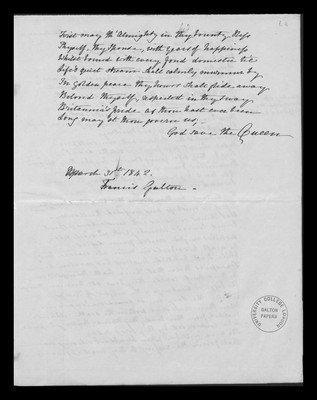 First may th' Almighty in thy bounty, bless
Thyself, thy spouse, with years of happiness
Whilst bound with every fond domestic tie
Life's quiet stream shall calmly by
In golden peace thy hours shall glide away
Beloved thyself, respected in thy sway
Britannia's pride as thou hast ever been
Long may'st thou govern us,
God save the Queen
March 31st 1842.
Francis Galton
UNIVERSITY COLLEGE LONDON
GALTON PAPERS